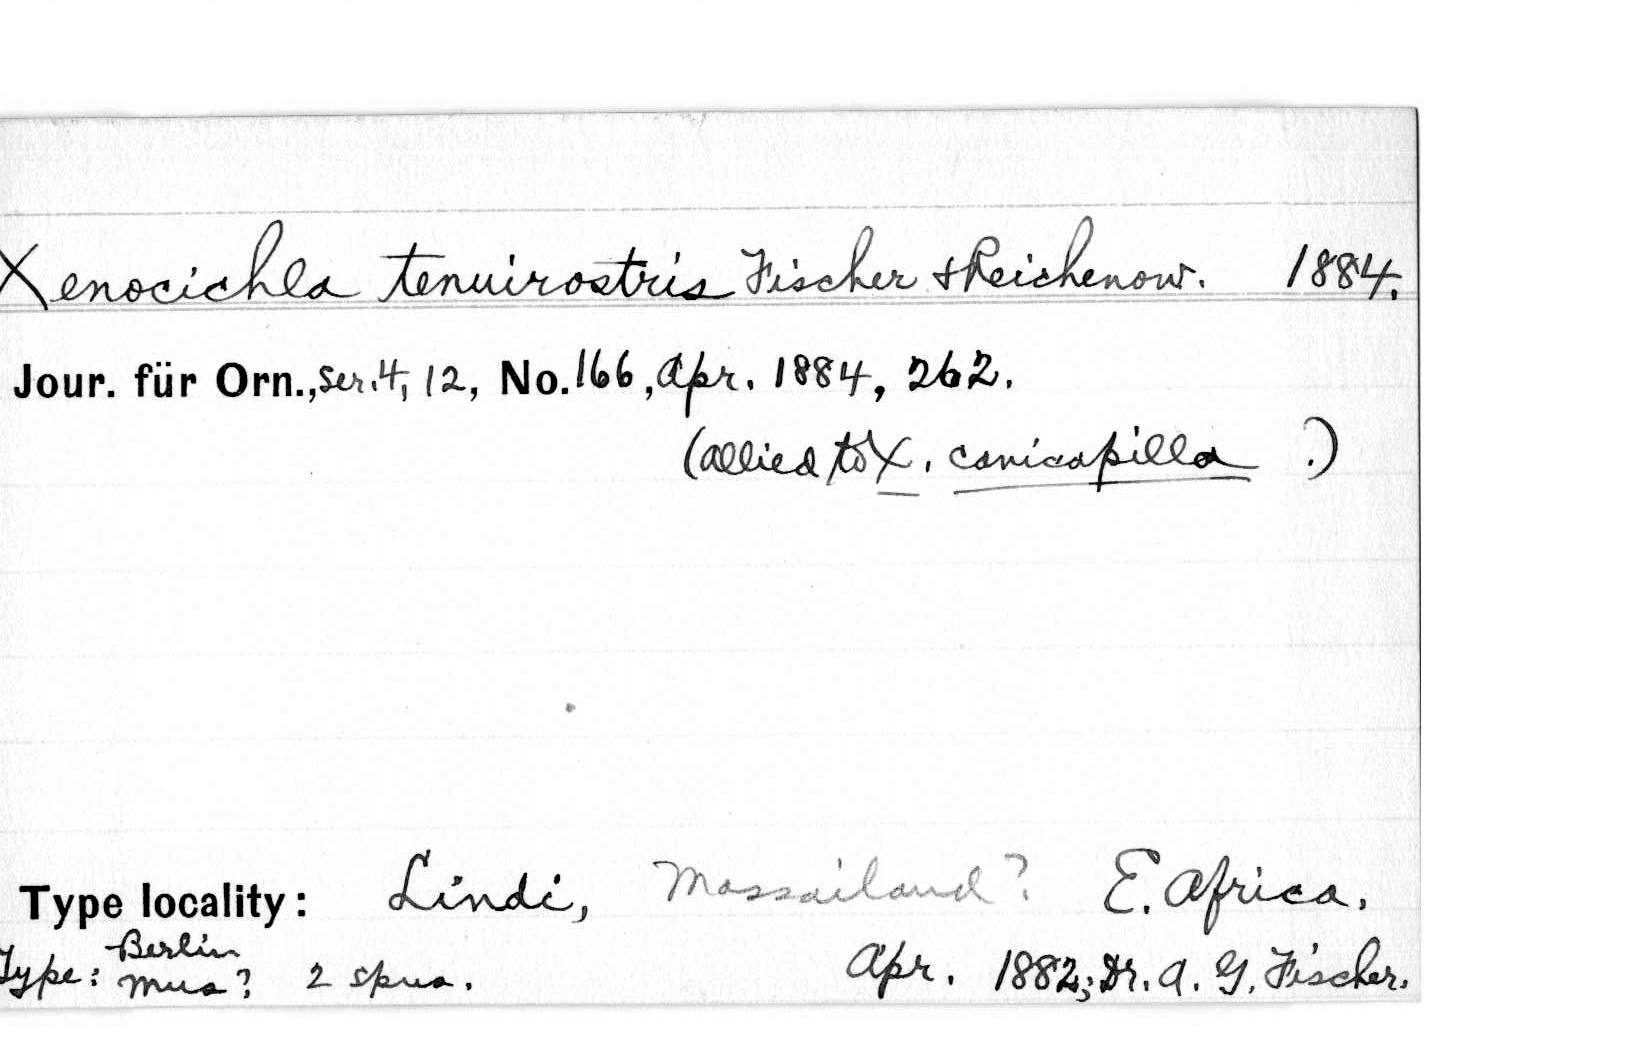 Xenocichla tenuirostris Fischer & Reichenow. 1884.
Jour. für Orn., ser. 4, 12, No. 166, Apr. 1884, 262.
(allied to X. canicapilla .)
Type locality: Lindi, Massailand? E. Africa.
Type: Berlin Mus? 2 spns. Apr. 1882; Dr. A. G. Fischer.